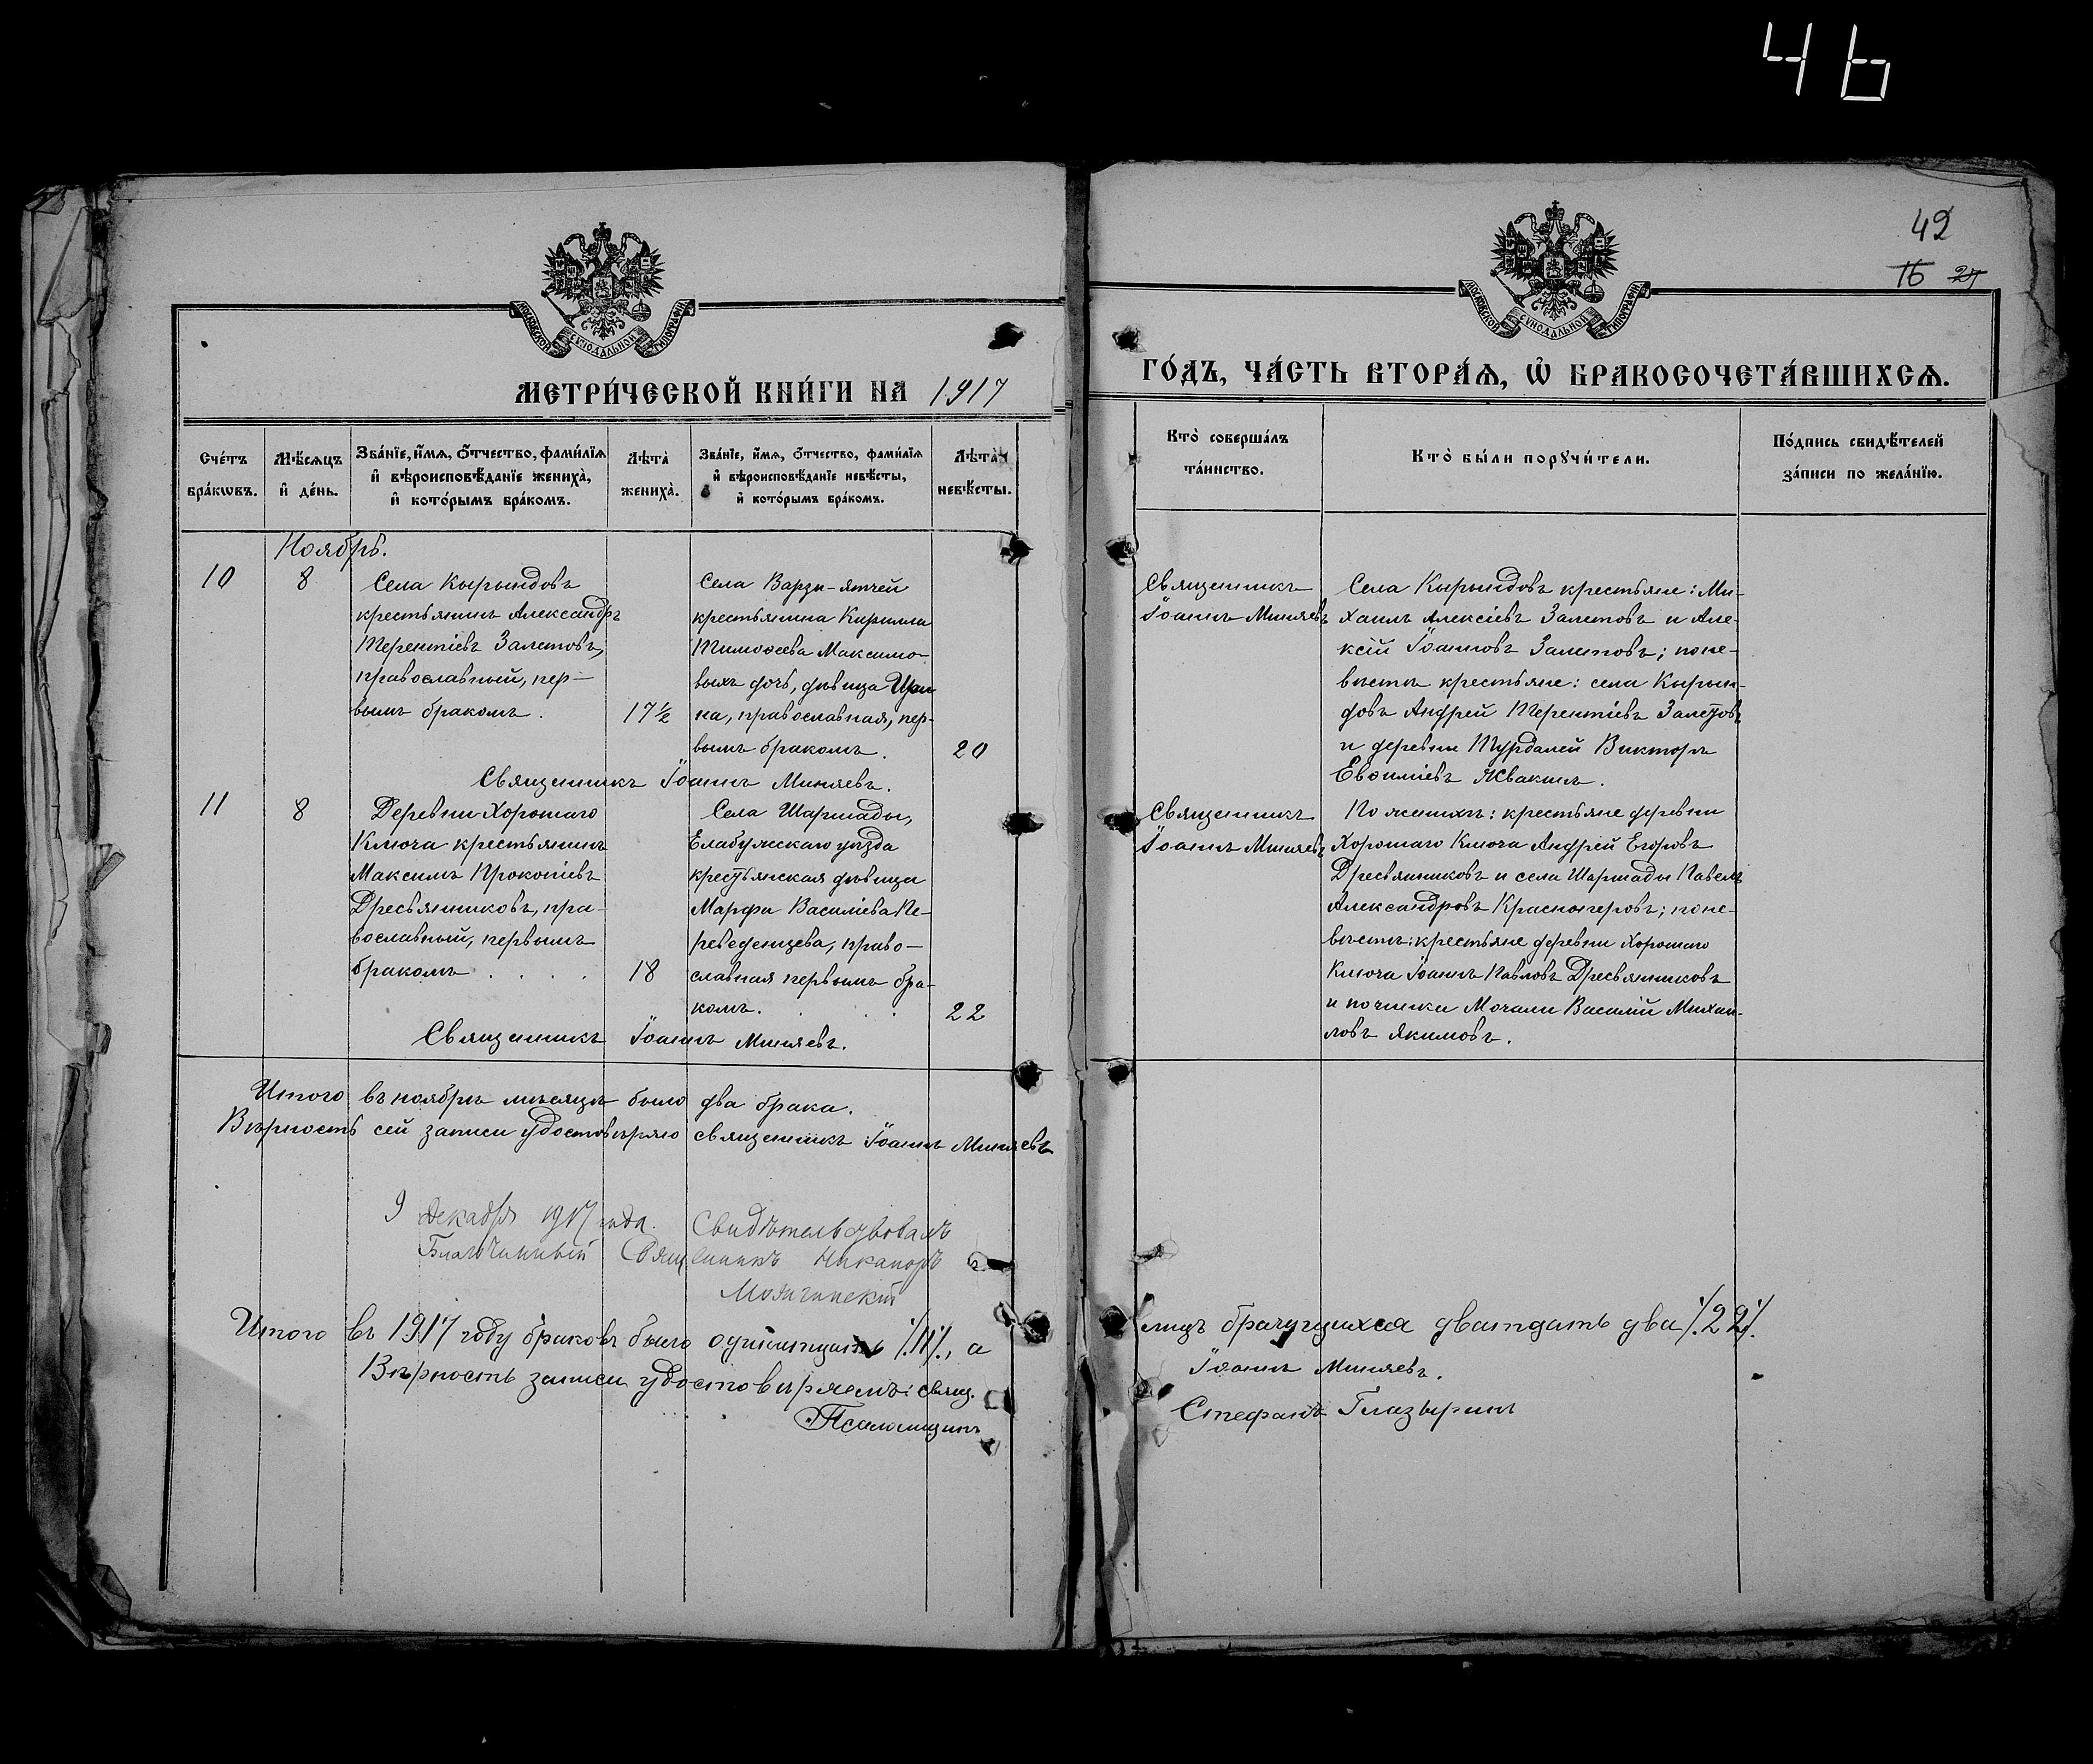 46
42
16 24
МОСКОВСКОЙ СѴНОДАЛЬНОЙ ТИПОГРАФІИ
МОСКОВСКОЙ СѴНОДАЛЬНОЙ ТИПОГРАФІИ
МЕТРИ́ЧЕСКОЙ КНИ́ГИ НА 1917
ГО́ДЪ, ЧА́СТЬ ВТОРА́Ѧ, Ѽ БРАКОСОЧЕТА́ВШИХСѦ.
Сче́тъ
бра́кωвъ.
Мѣ́сяцъ
и҆ де́нь.
Зва́нїе, и҆́мѧ, ѻ҆́тчество, фами́лїѧ
и҆ вѣроисповѣ́данїе жениха̀,
и҆ кото́рымъ бра́комъ.
Лѣта̀
жениха̀.
Зва́нїе, и҆́мѧ, ѻ҆́тчество, фами́лїѧ
и҆ вѣроисповѣ́данїе невѣ́сты,
и҆ кото́рымъ бра́комъ.
Лѣта̀
невѣ́сты.
Кто̀ соверша́лъ
та́инство.
Кто̀ бы́ли порꙋчи́тели.
По́дпись свидѣ́телей
за́писи по жела́нїю.
Ноябрь.
10
8
Села Кырындовъ
крестьянинъ Александръ
Терентіевъ Залетовъ,
православный, пер-
вымъ бракомъ.
17½
Села Варзи-ятчей
крестьянина Кирилла
Тимоѳеева Максимо-
выхъ дочь, дѣвица Ири-
на, православная, пер-
вымъ бракомъ.
20
Священникъ
Іоаннъ Миняевъ
Села Кырындовъ крестьяне: Ми-
хаилъ Алексіевъ Залетовъ и Але-
ксій Іоанновъ Залетовъ; по не-
вѣстѣ крестьяне: села Кырын-
довъ Андрей Терентіевъ Залетовъ
и деревни Турдалей Викторъ
Евѳиміевъ Жвакинъ.
Священникъ Іоаннъ Миняевъ.
11
8
Деревни Хорошаго
Ключа крестьянинъ
Максимъ Прокопіевъ
Дресвянниковъ, пра-
вославный, первымъ
бракомъ . . . .
18
Села Шаршады,
Елабужскаго уѣзда
крестьянская дѣвица
Марфа Василіева Пе-
реведенцева, право-
славная первымъ бра-
комъ. . . .
22
Священникъ
Іоаннъ Миняевъ
По женихѣ: крестьяне деревни
Хорошаго Ключа Андрей Егоровъ
Дресвянниковъ и села Шаршады Павелъ
Александровъ Красноперовъ; по не-
вѣстѣ: крестьяне деревни Хорошаго
Ключа Іоаннъ Павловъ Дресвянниковъ
и починка Мочали Василій Михаи-
ловъ Якимовъ.
Священникъ Іоаннъ Миняевъ.
Итого въ ноябрѣ мѣсяцѣ было два брака.
Вѣрность сей записи удостовѣряю священникъ Іоаннъ Миняевъ
9 Декабря 1917 года. Свидѣтельствовалъ
Благочинный Священникъ Никаноръ
Итого въ 1917 году браковъ было одиннадцать /.11/., а
лицъ брачущихся двадцать два /.22/.
Вѣрность записи удостовѣряемъ: свящ.
Іоаннъ Миняевъ.
Псаломщикъ
Стефанъ Глазыринъ